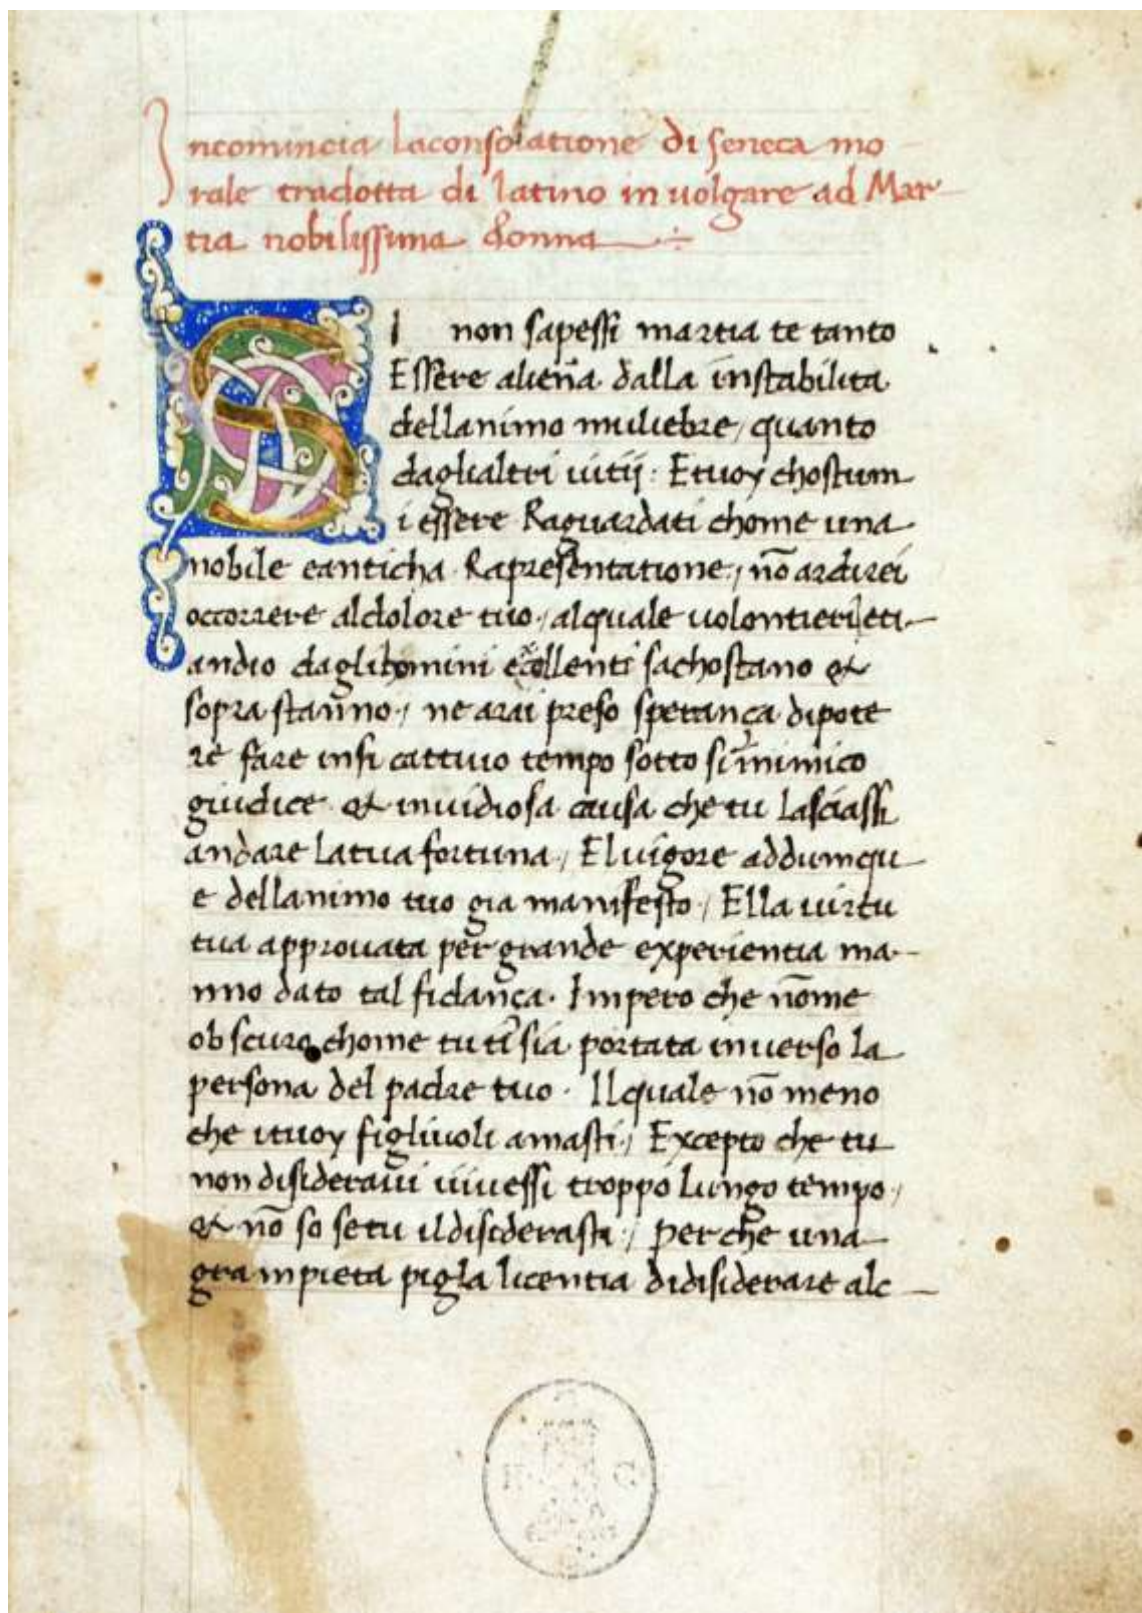 Incomincia laconsolatione di seneca mo
rale tradotta di latino in uolgare ad Mar
tia nobilissima donna
SI non sapessi martia te tanto
Essere aliena dalla instabilita
dellanimo muliebre, quanto
daglialtri uitij. Etuoy chostum
i essere Raguardati chome una
nobile eanticha Rapresentatione, nō ardirei
occorrere aldolore tuo, alquale uolontieri eti
andio daglihomini excellenti sachostano et
sopra stanno, ne arai preso sperança dipote
re fare insi cattiuo tempo sotto si inimico
giudice et inuidiosa causa che tu lasciassi
andare latua fortuna, El uigore addumqu
e dellanimo tuo gia manifesto, Ella uirtu
tua approuata per grande experientia ma
nno dato tal fidança. Impero che nōme
obscuro chome tu ti sia portata inuerso la
persona del padre tuo. Ilquale nō meno
che ituoy figliuoli amasti, Excepto che tu
non disideraui uiuessi troppo lungo tempo,
et nō so setu ildisiderasti, perche una
gra mpieta pigla licentia didisiderare alc